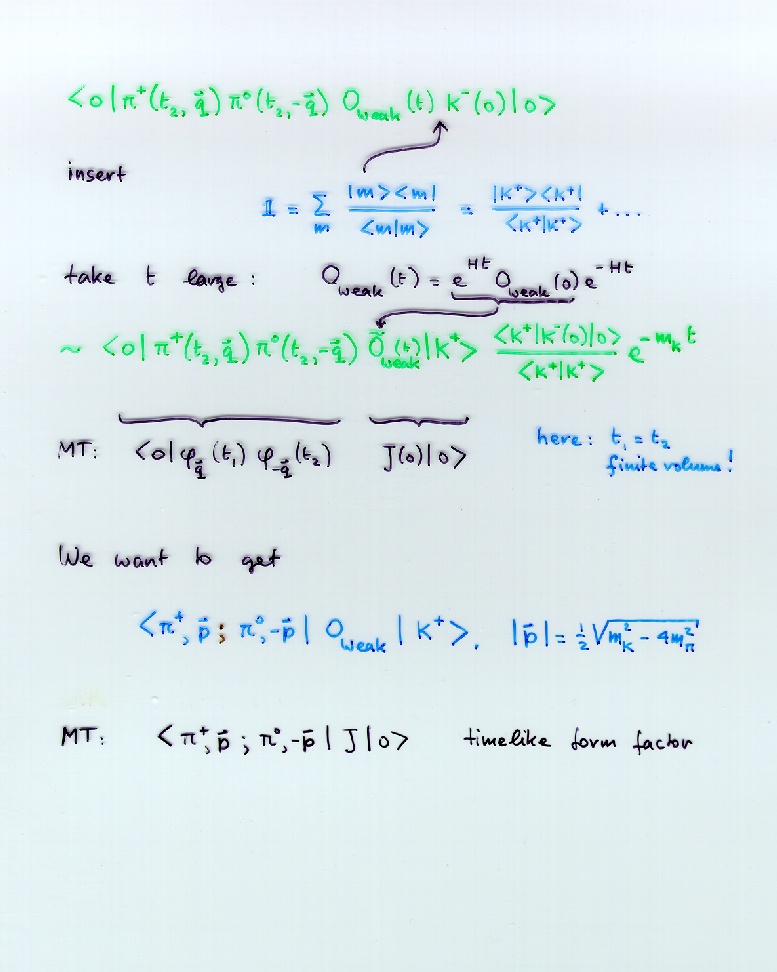 <0|π⁺(t₂, q⃗) π⁰(t₂, -q⃗) O_weak (t) K⁻(0)|0>
insert
𝟙 = Σ_m |m><m| / <m|m> = |K⁺><K⁺| / <K⁺|K⁺> + ...
take t large : O_weak (t) = e^{Ht} O_weak (0) e^{-Ht}
~ <0| π⁺(t₂, q⃗) π⁰(t₂, -q⃗) Õ_weak (t) |K⁺> <K⁺|K⁻(0)|0> / <K⁺|K⁺> e^{-m_K t}
MT: <0| φ_q⃗ (t₁) φ_-q⃗ (t₂) J(0)|0>
here: t₁ = t₂
finite volume!
We want to get
<π⁺, p⃗ ; π⁰, -p⃗ | O_weak | K⁺>, |p⃗| = ½ √(m_K² - 4m_π²)
MT: <π⁺, p⃗ ; π⁰, -p⃗ | J |0> timelike form factor